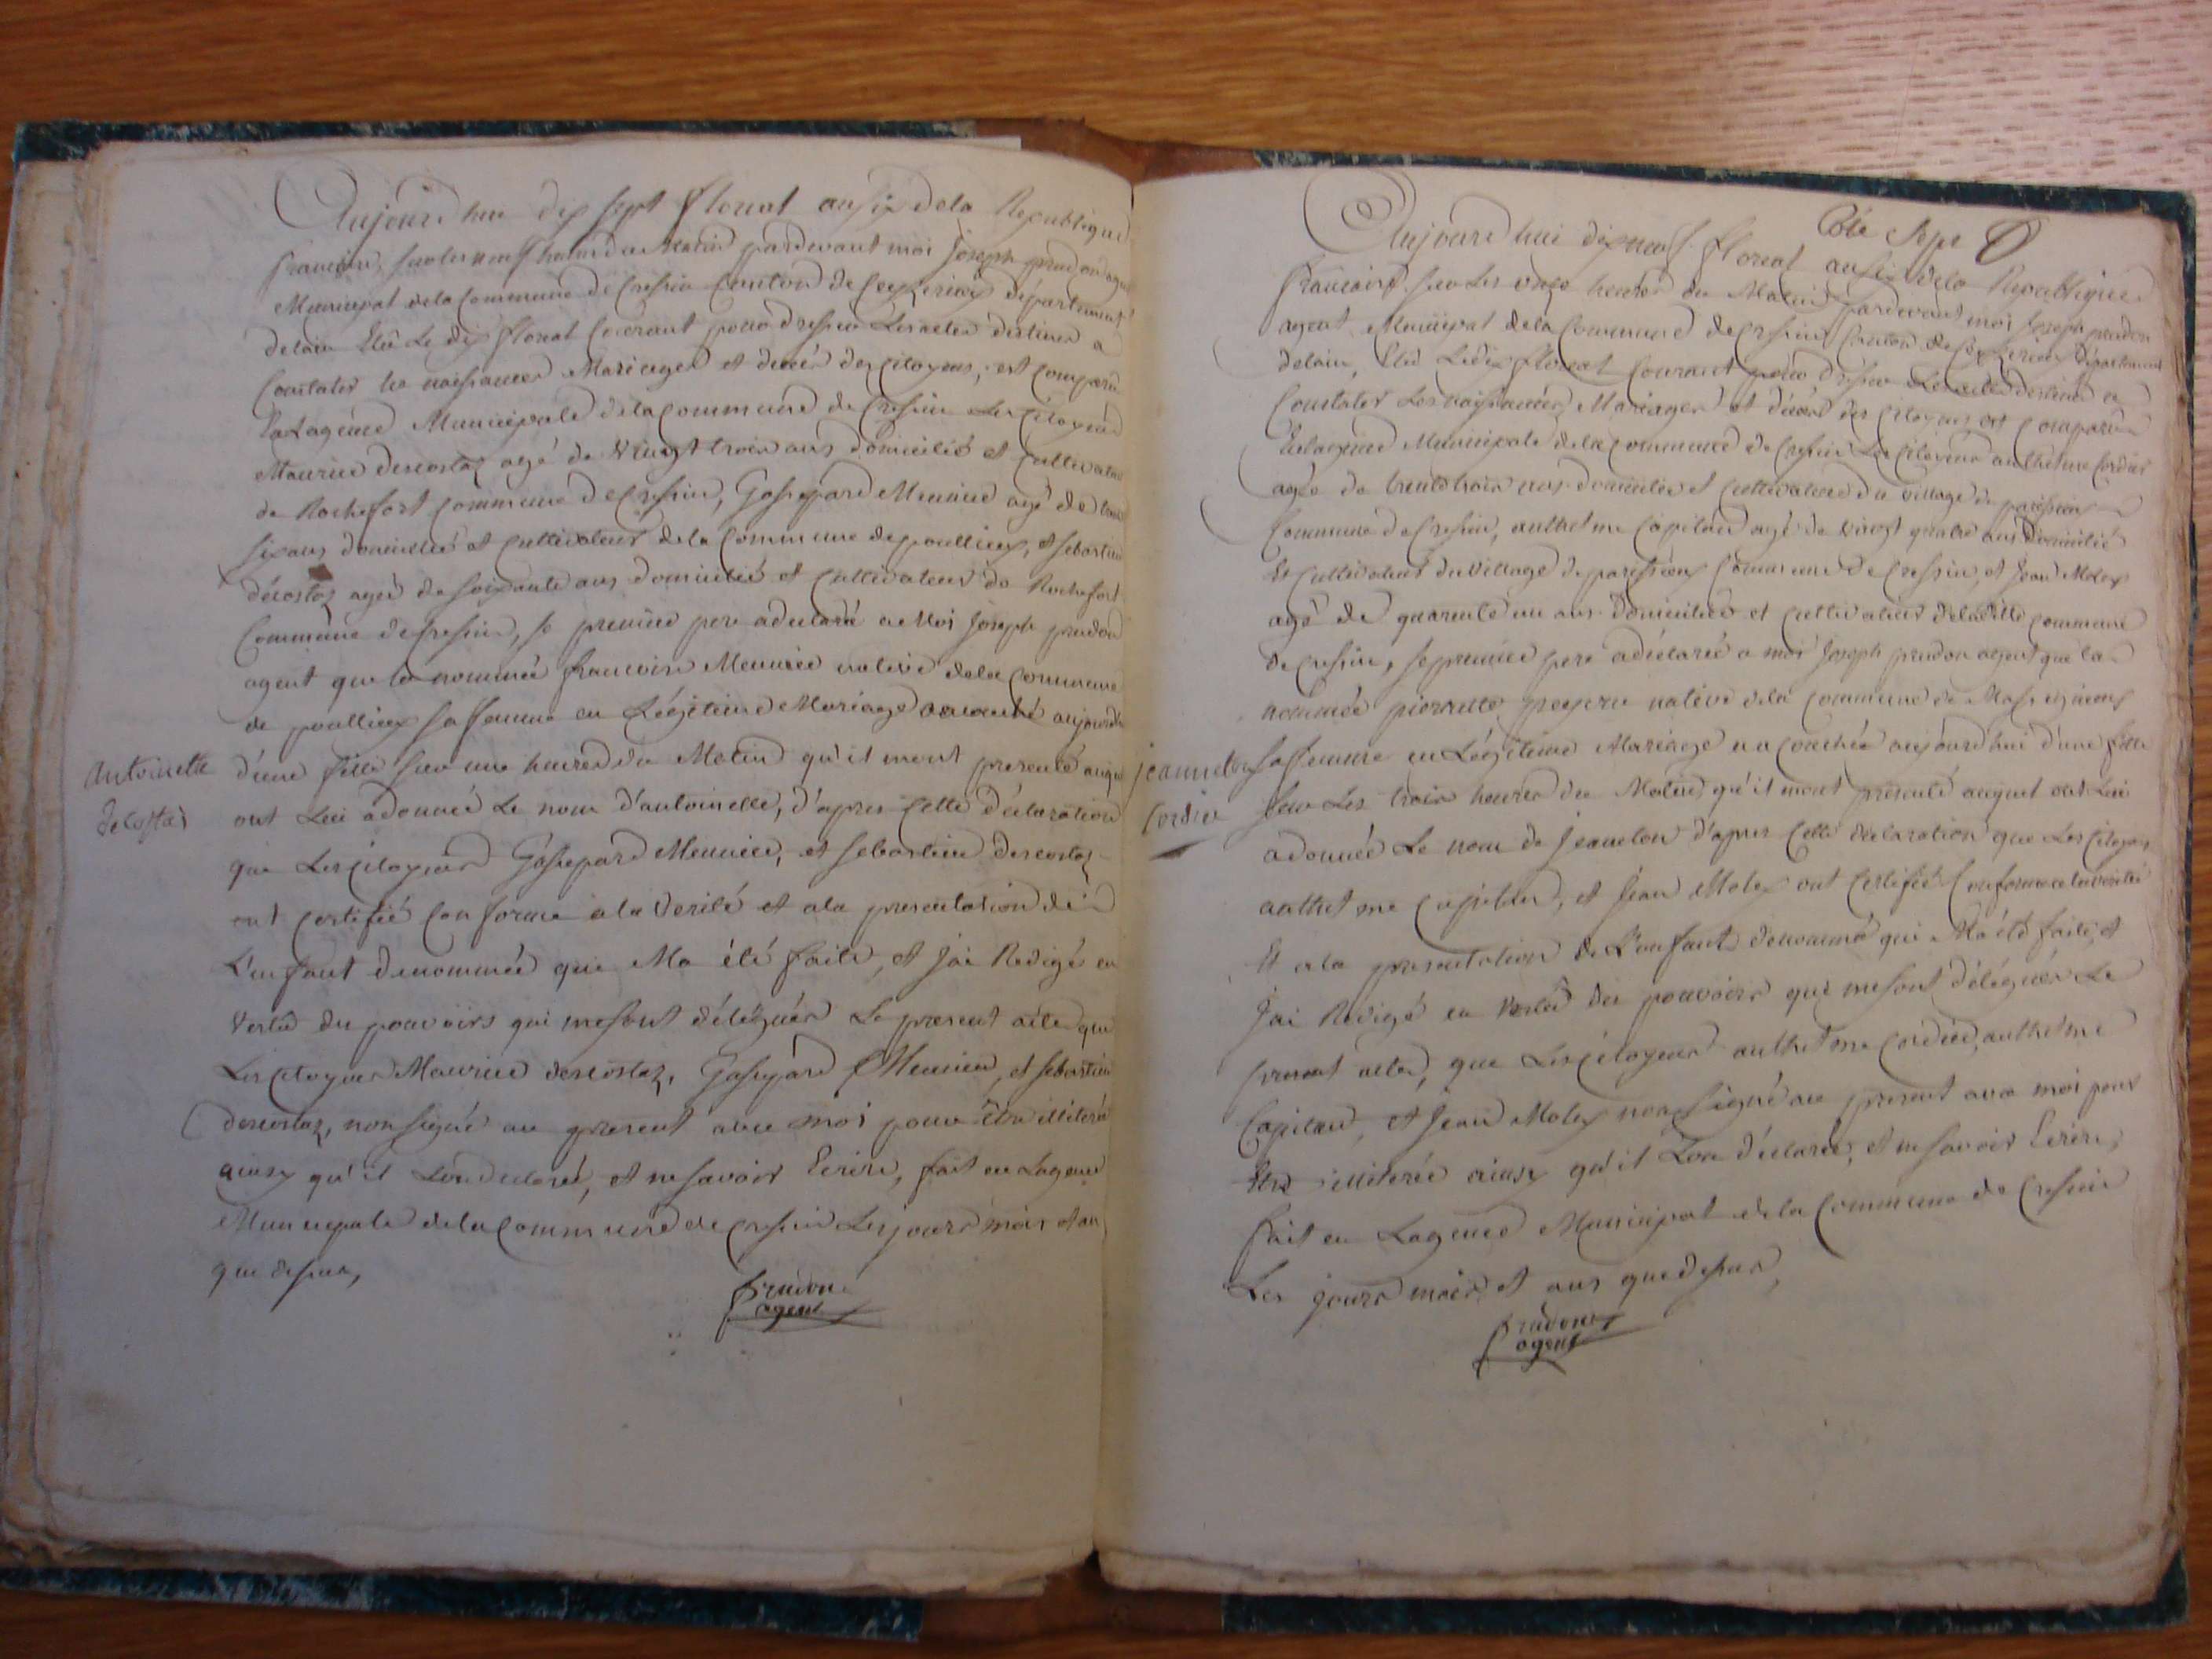 Aujourd hui dix sept floreal an six dela Republique
francaise, sur les neuf heures du Matin pardevant moi Joseph prudon agent
Municipal dela Commune de Cressin Canton de Ceyzerieux département
delain Elû Le dix floreal Courant pour dresser Les actes destinés a
Constater les naissances Mariages et decés des Citoyens, est comparu
En Lagence Municipale dela commune de Cressin Les Citoyens
Maurice descostaz agé de vingt trois ans domicilié et Cultivateur
de Rochefort Commune de Cressin, Gaspard Meunier agé de trente
six ans domicilié et Cultivateur dela Commune de poullieux, et sebastien
décostaz agé de soixante ans domicilié et Cultivateur de Rochefort
Commune de Cressin, le premier pere a declaré a Moi Joseph prudon
agent que la nommée francoise Meunier native dela Commune
de poullieux sa femme en Légitime Mariage a accouché aujourdhui
d'une fille sur une heures du Matin qu'il mont presenté auquel
ont Lui a donnée Le nom d'antoinette, d'apres Cette déclaration
Antoinette
decostas
que Les Citoyens Gaspard Meunier, et sebastien descostaz
ont certifié Conforme a la verité et a la presentation de
L'enfant denommée qui Ma été faite, et jai Redigé en
Vertû des pouvoirs qui me sont délégués Le present acte que
Les Citoyens Maurice descostaz, Gaspard Meunier, et sebastien
descostaz, non signé au present avec moi pour être illiteré
ainsy qu'il Lon declaré, et ne savoir Ecrire, fait en Lagence
Municipale dela Commune de Cressin Les jours mois et an
que dessus,
prudon
agent
Coté Sept
Aujourd hui dix neuf floreal an six dela Republique
francaise sur Les onze heures du Matin pardevant moi Joseph prudon
agent Municipal dela Commune de Cressin Canton de Ceyzerieux Département
delain, Elû Le dix floreal Courant pour dresser Les actes destinés a
Constater Les naissances, Mariages et décés des Citoyens est Comparu
En Lagence Municipale dela Commune de Cressin Les Citoyens anthelme Cordier
agée de trente trois ans domicilié et Cultivateur du village de parissieux
Commune de Cressin, anthelme Capitan agé de vingt quatre ans Domicilié
Et Cultivateur du village de parissieux Commune de Cressin, et Jean Molex
agé de quarente un ans domicilié et Cultivateur de Ladite Commune
de Cressin, le premier pere a déclarée a moi Joseph prudon agent que la
nommée pierrette native dela Commune de Massignieux
sa femme en Légitime Mariage a accouchée aujourd hui d'une fille
jeanneton
Cordier
sur Les trois heures du Matin qu'il mont présenté auquel ont Lui
a donnée Le nom de Jeanneton d'apres Cette declaration que Les Citoyens
anthelme Capitan, et Jean Molex ont Certifié Conforme a la verité
Et a la presentation de L'enfant denommé qui Ma été faite, et
Jai Redigé en Vertû des pouvoirs qui me sont délégués Le
present acte, que Les Citoyens anthelme Cordier, anthelme
Capitan, et Jean Molex non signé au present avec moi pour
Etre illiterée ainsy qu'il Lon déclarée, et ne savoir Ecrire,
fait en Lagence Municipal dela Commune de Cressin
Les jours mois et ans que dessus,
prudon
agent